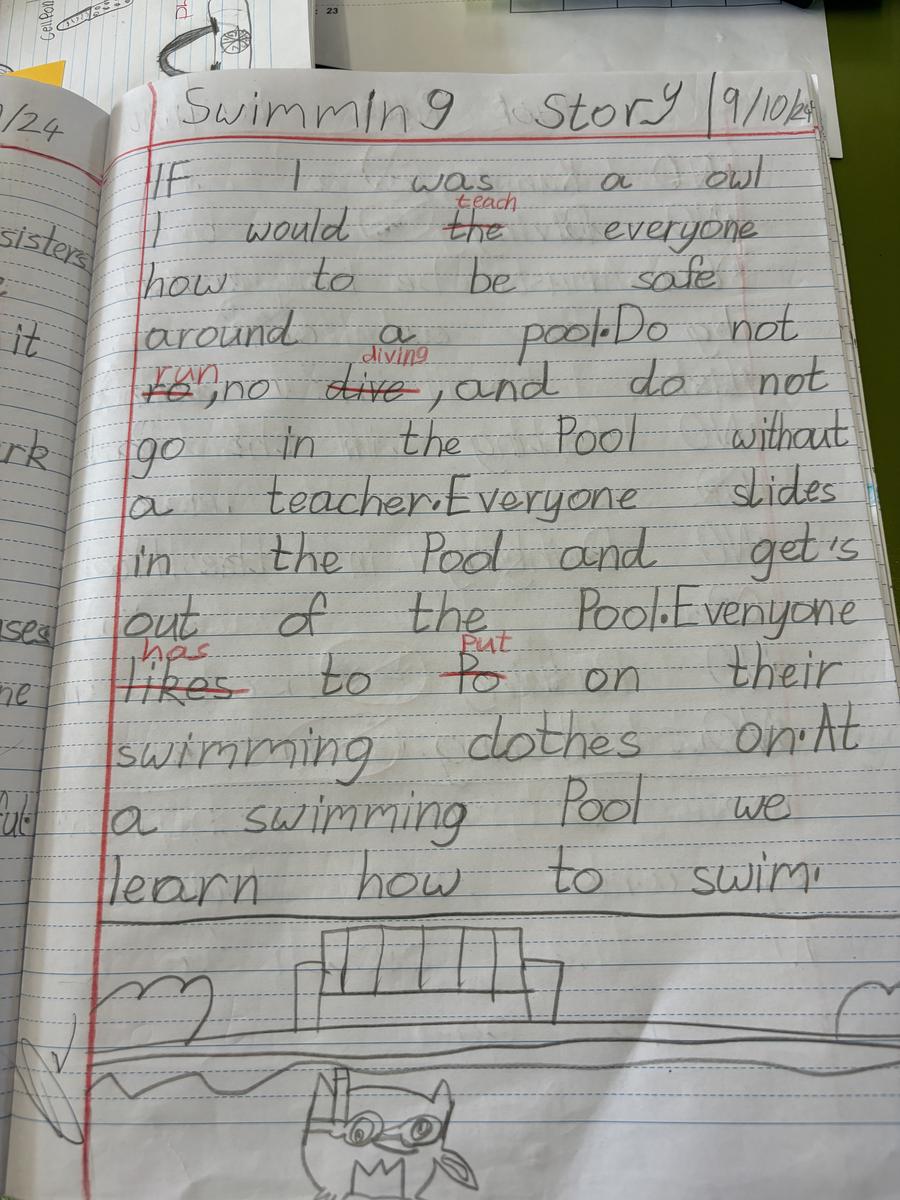 cellpan
: 23
/24
sisters
it
rk
ses
ne
ful.
Swimming Story 19/10/24
IF I was a owl
teach
I would the everyone
how to be safe
around a pool.Do not
run diving
ro,no dive ,and do not
go in the Pool without
a teacher.Everyone slides
in the Pool and get's
out of the Pool.Evenyone
has put
likes to Po on their
swimming clothes on.At
a swimming Pool we
learn how to swim.